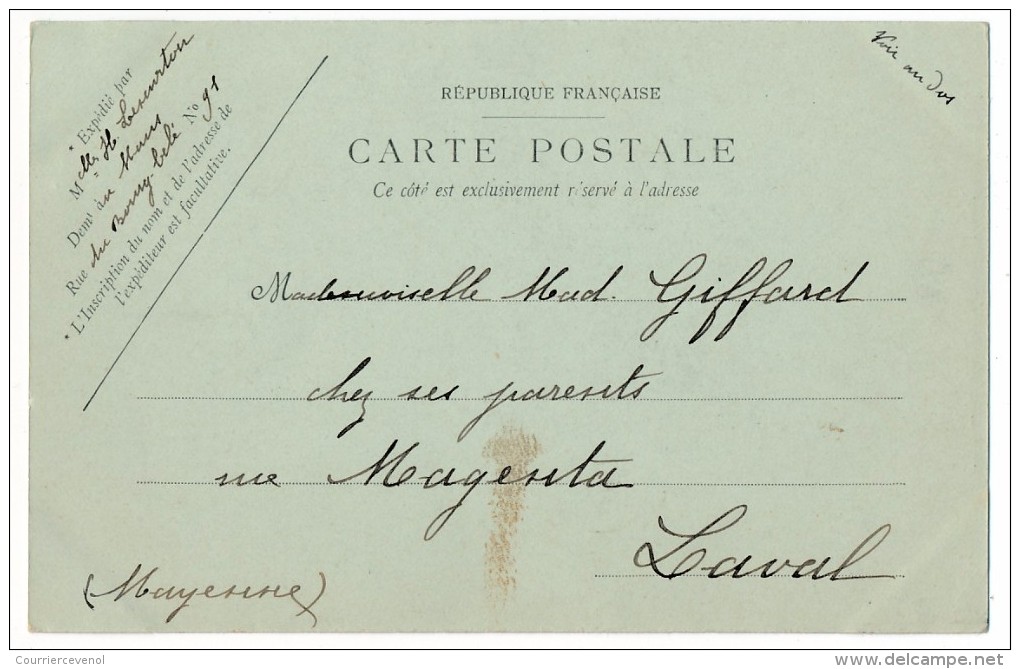 * Expédié par
Mlle H. Leseurton
Demt à au Mans
Rue du Bourg-belé No 91
* L'Inscription du nom et de l'adresse de
l'expéditeur est facultative.
Voir au dos
RÉPUBLIQUE FRANÇAISE
CARTE POSTALE
Ce côté est exclusivement réservé à l'adresse
Mademoiselle Mad. Giffard
chez ses parents
rue Magenta
Laval
(Mayenne)
Courriercevenol
delcampe.net